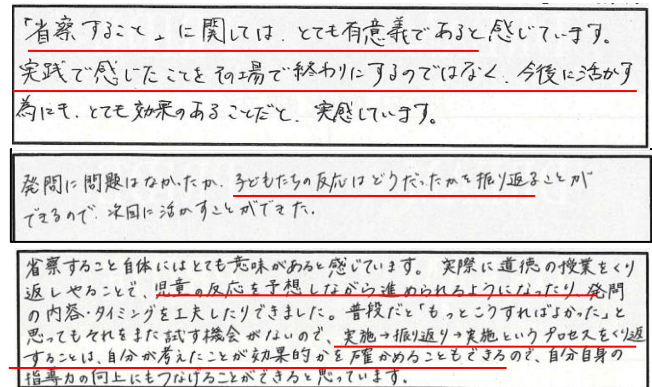 「省察すること」に関しては、とても有意義であると感じています。
実践で感じたことをその場で終わりにするのではなく、今後に活かす
為にも、とても効果のあることだと、実感しています。
発問に問題はなかったか、子どもたちの反応はどうだったかを振り返ることが
できるので、次回に活かすことができた。
省察すること自体にはとても意味があると感じています。実際に道徳の授業をくり
返しやることで、児童の反応を予想しながら進められるようになったり、発問
の内容・タイミングを工夫したりできました。普段だと「もっとこうすればよかった」と
思ってもそれをまた試す機会がないので、実施→振り返り→実施というプロセスをくり返
することは、自分が考えたことが効果的かを確かめることもできるので、自分自身の
指導力の向上にもつなげることができると思っています。